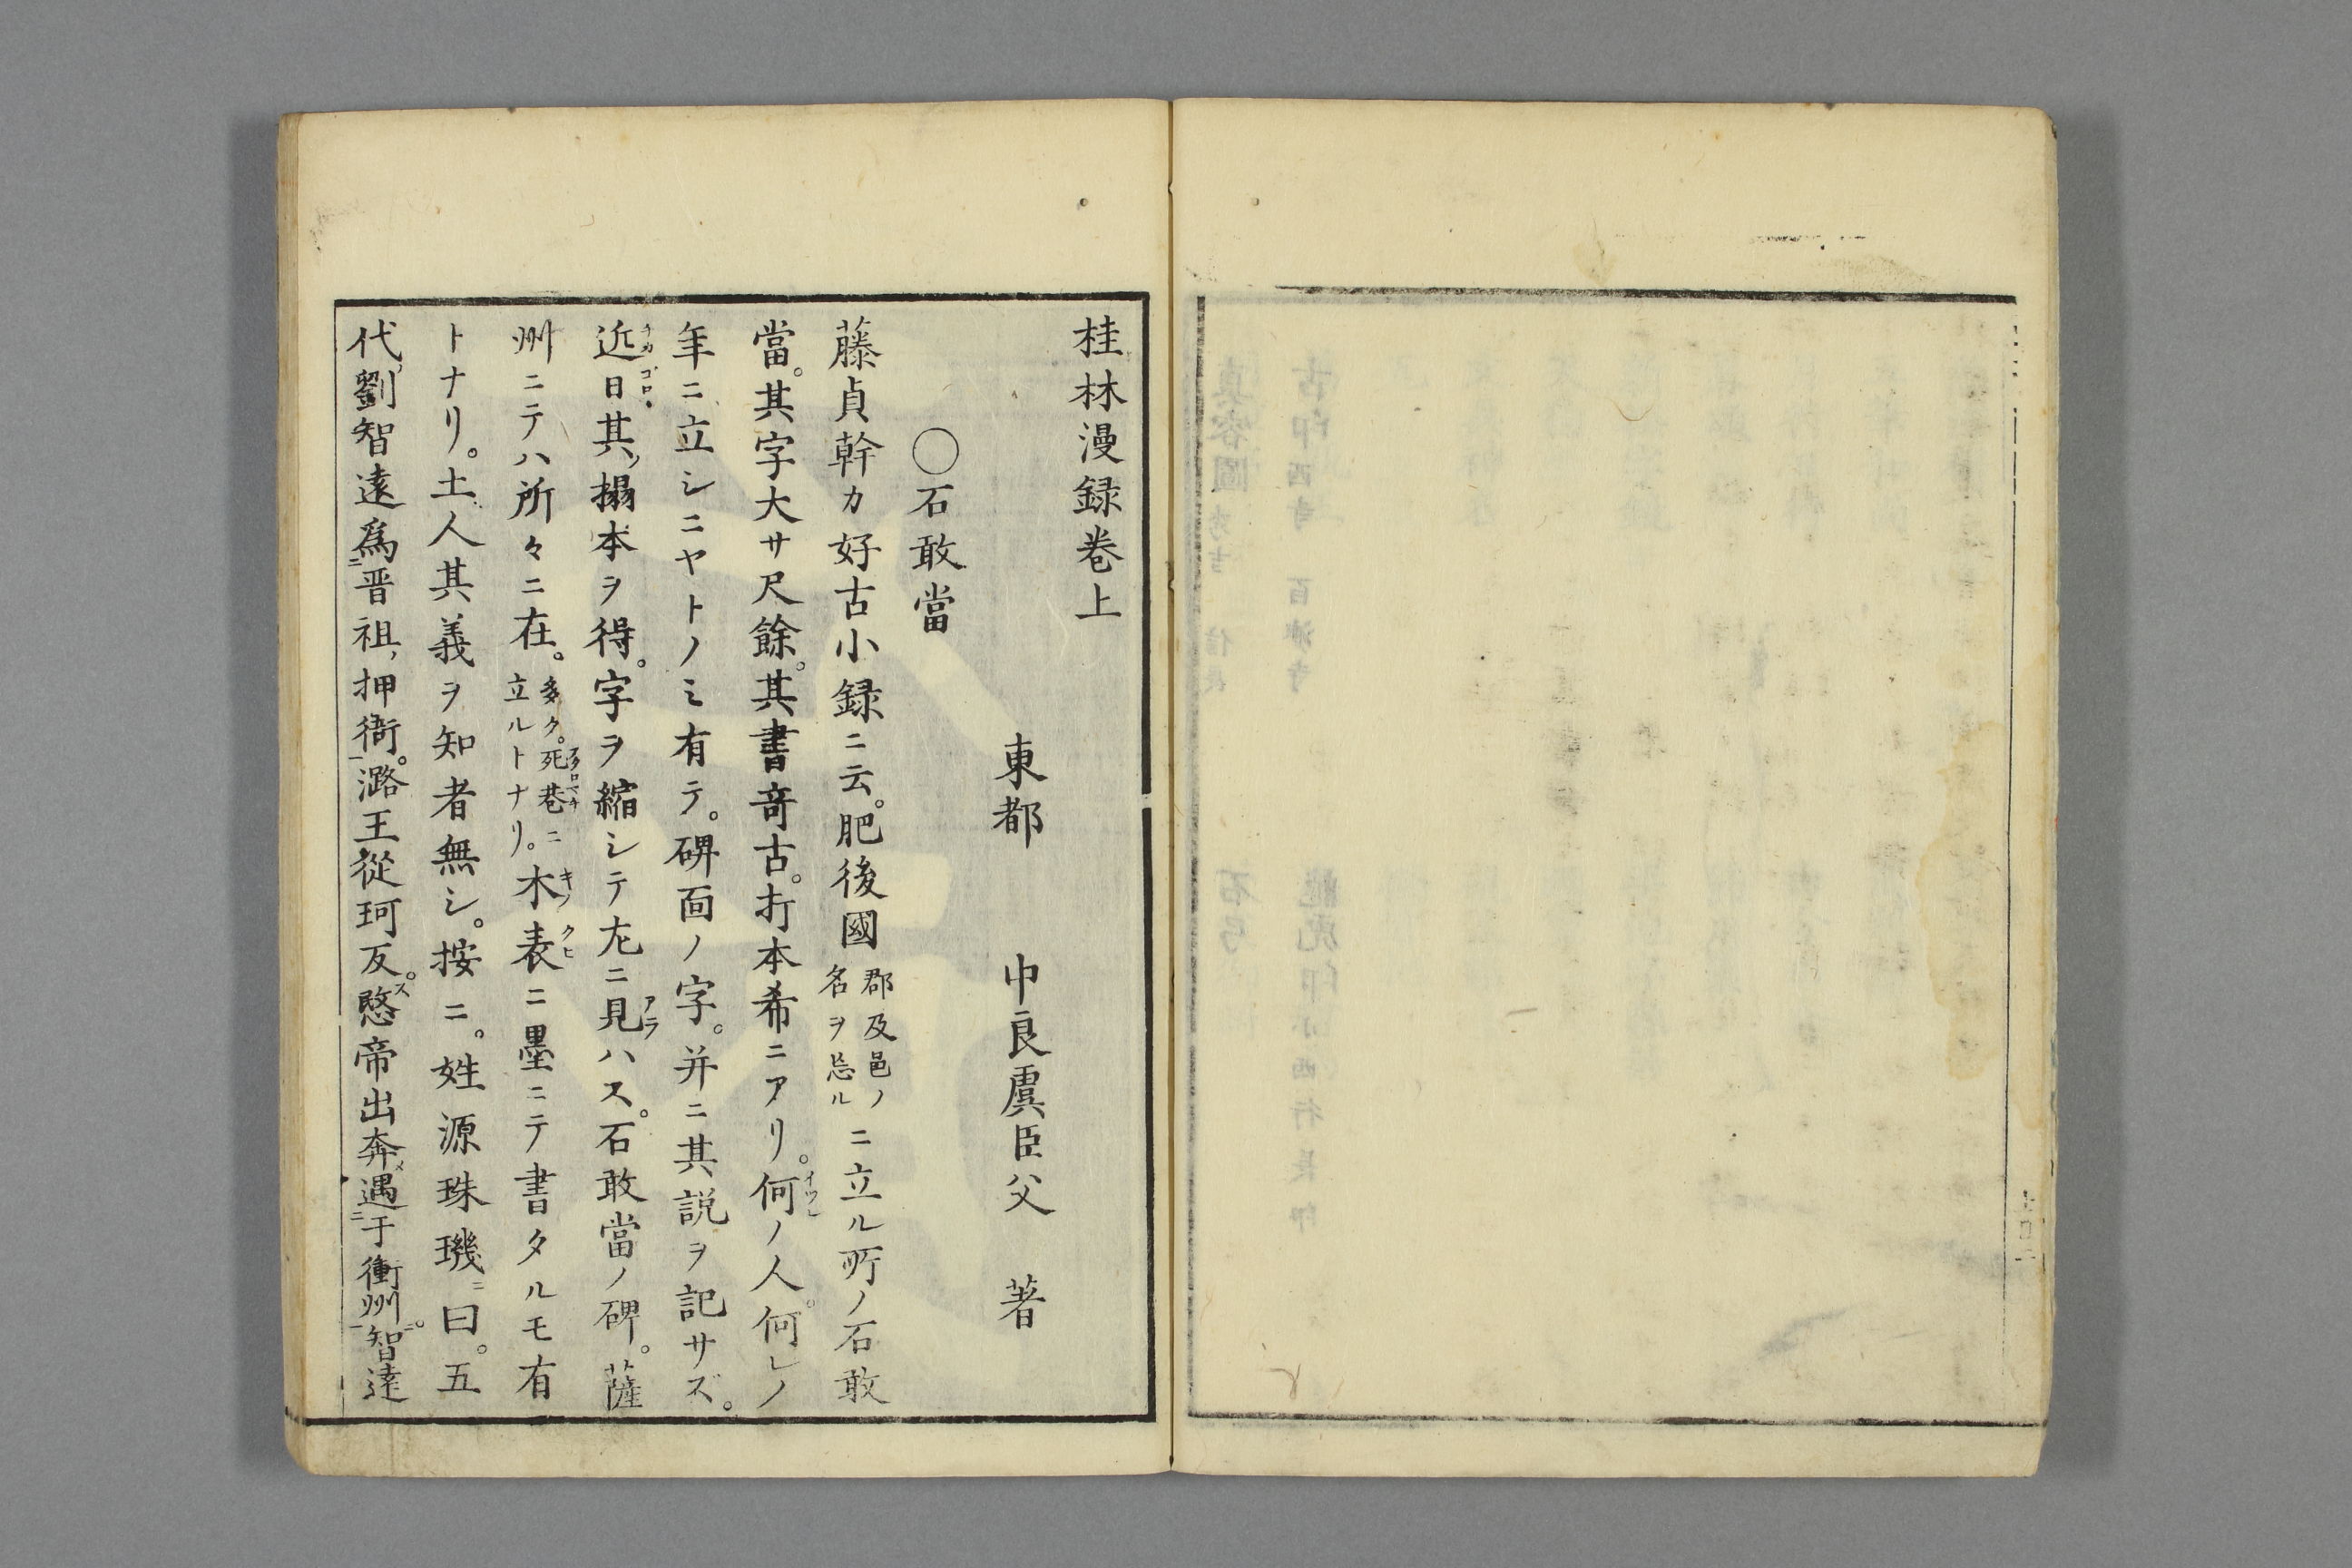 桂林漫録巻上
東都 中良虞臣父 著
○石敢當
藤貞幹カ好古小録ニ云。肥後國郡及邑ノ名ヲ忘ルニ立ル所ノ石敢
當。其字大サ尺餘。其書竒古。打本希ニアリ。何ノ人。何レノ
年ニ立シニヤトノミ有テ。碑面ノ字。并ニ其説ヲ記サズ。
近日其搨本ヲ得。字ヲ縮シテ左ニ見ハス。石敢當ノ碑。薩
州ニテハ所々ニ在。多ク。死巷ニ立ルトナリ。木表ニ墨ニテ書タルモ有
トナリ。土人其義ヲ知者無シ。按ニ。姓源珠璣ニ曰。五
代劉智遠為晋祖押衙。潞王從珂反。愍帝出奔遇于衝州。智遠